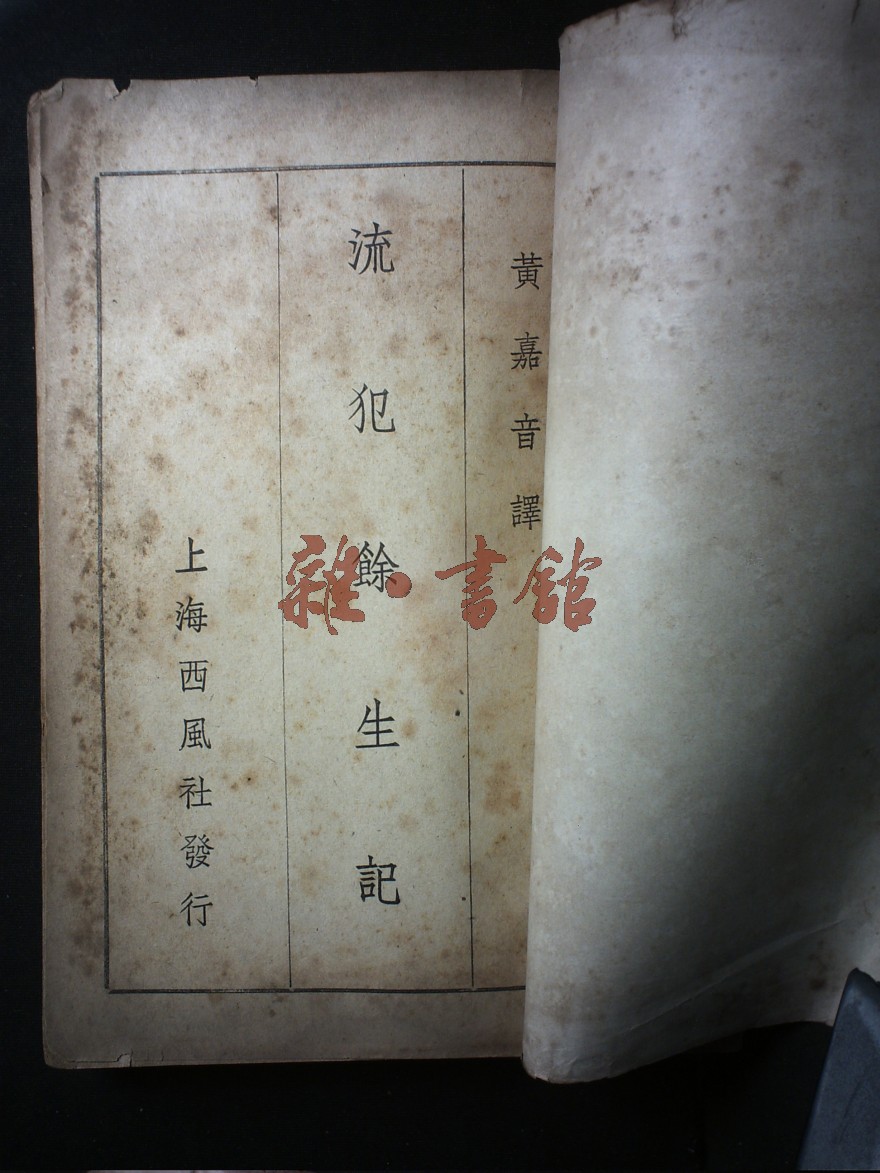 黃嘉音譯
流犯餘生記
上海西風社發行
雜·書館